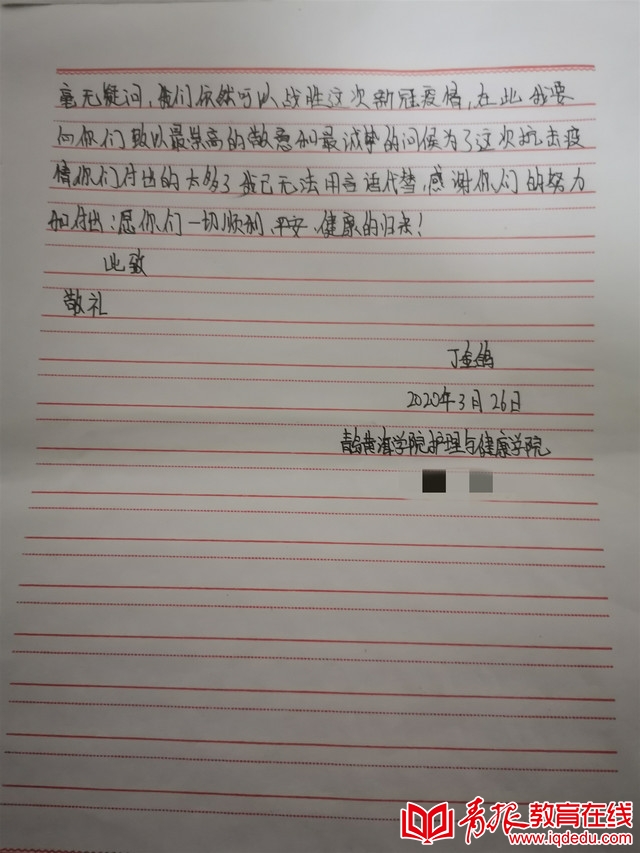 毫无疑问,我们依然可以战胜这次新冠疫情,在此我要
向你们致以最崇高的敬意和最诚挚的问候为了这次抗击疫
情你们付出的太多了我已无法用言语代替,感谢你们的努力
和付出;愿你们一切顺利、平安、健康的归来!
此致
敬礼
丁金鸽
2020年3月26日
青岛黄海学院护理与健康学院
青报教育在线
www.iqdedu.com